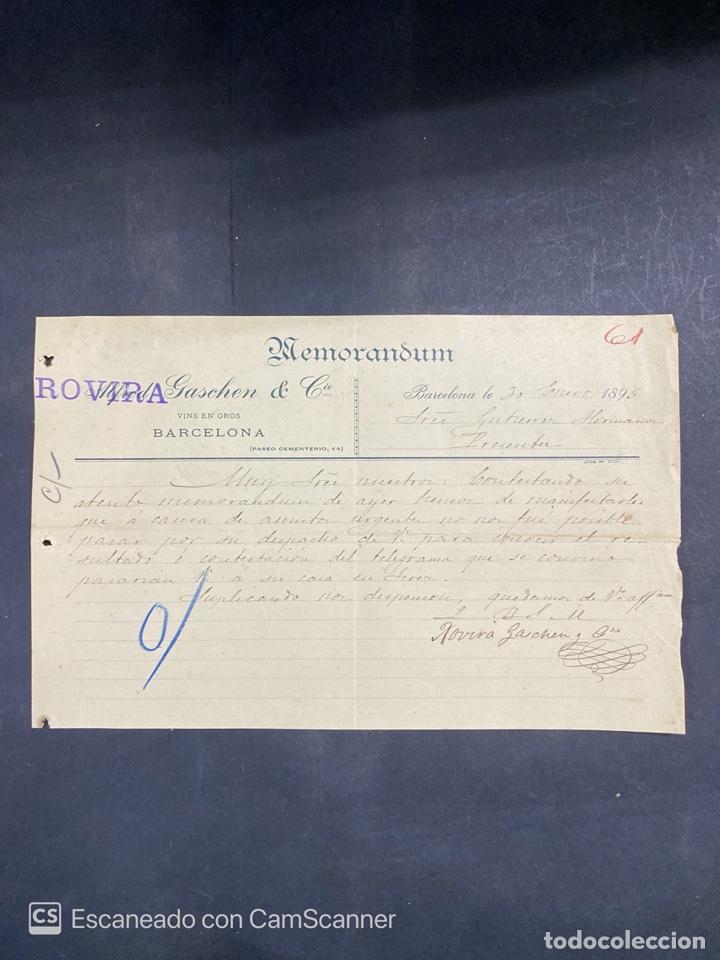 61
Memorandum
ROVIRA
Alfred Gaschen & Cie
VINS EN GROS
BARCELONA
(PASEO CEMENTERIO, 14)
Barcelona le 30 Enero 1895
Sres Gutierrez Hermanos
Presente
c/-
Muy Sres nuestros: Contestando su
atento memorandum de ayer hemos de manifestarles
que á causa de asuntos urgentes no nos fué posible
pasar por su despacho de Vs para conocer el re-
sultado ó contestación del telegrama que se convino
pasarian Vs á su casa en Jerez.
Suplicando nos dispensen, quedamos de Vs affmos
S B S M
Rovira Gaschen y Cia
0/
CS Escaneado con CamScanner
todocoleccion